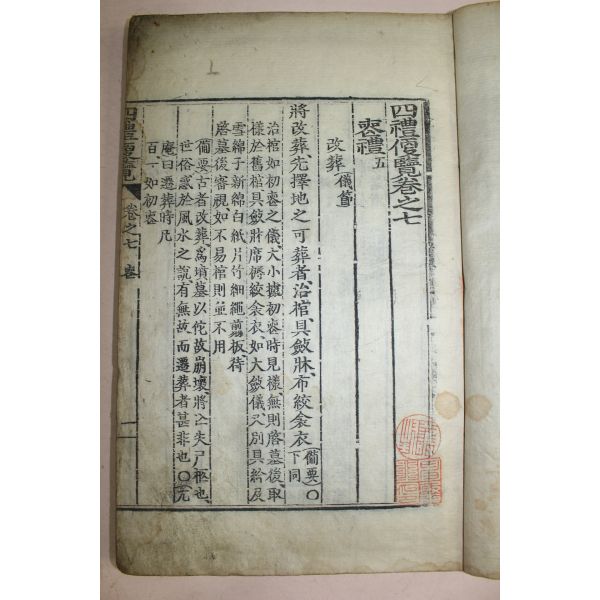 四禮便覽卷之七
喪禮五
改葬 儀節
將改葬先擇地之可葬者治棺具斂牀布絞衾衣 備要○下同
治棺如初喪之儀大小據初喪時見樣無則啓墓後取
樣於舊棺具斂牀席褥絞衾衣如大斂儀又別具給屍
雪綿子新綿白紙片竹細繩前板待
啓墓後審視如不易棺則並不用
備要古者改葬爲墳墓以佗故崩壞將亡失尸柩也
世俗惑於風水之說有無故而遷葬者甚非也○尤
庵曰遷葬時凡
百一如初喪
四禮便覽 卷之七 喪 一